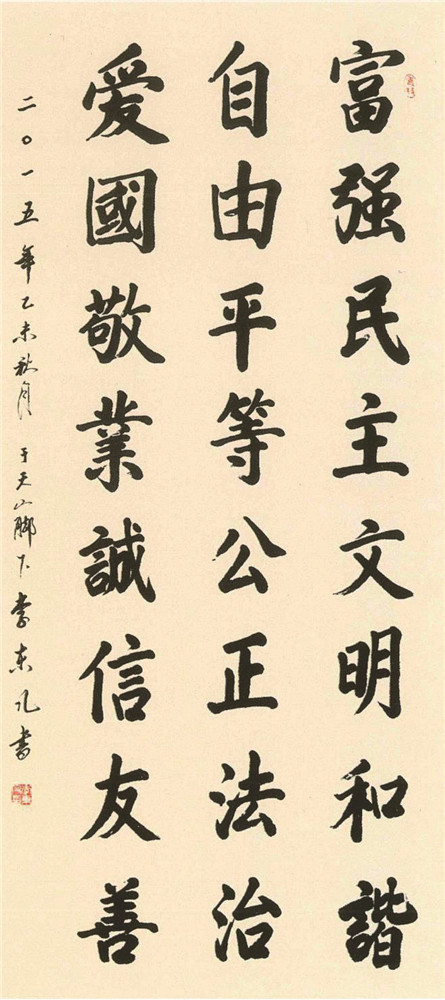 富强民主文明和諧
自由平等公正法治
爱國敬業誠信友善
二〇一五年乙未秋月于天山脚下李东凡書